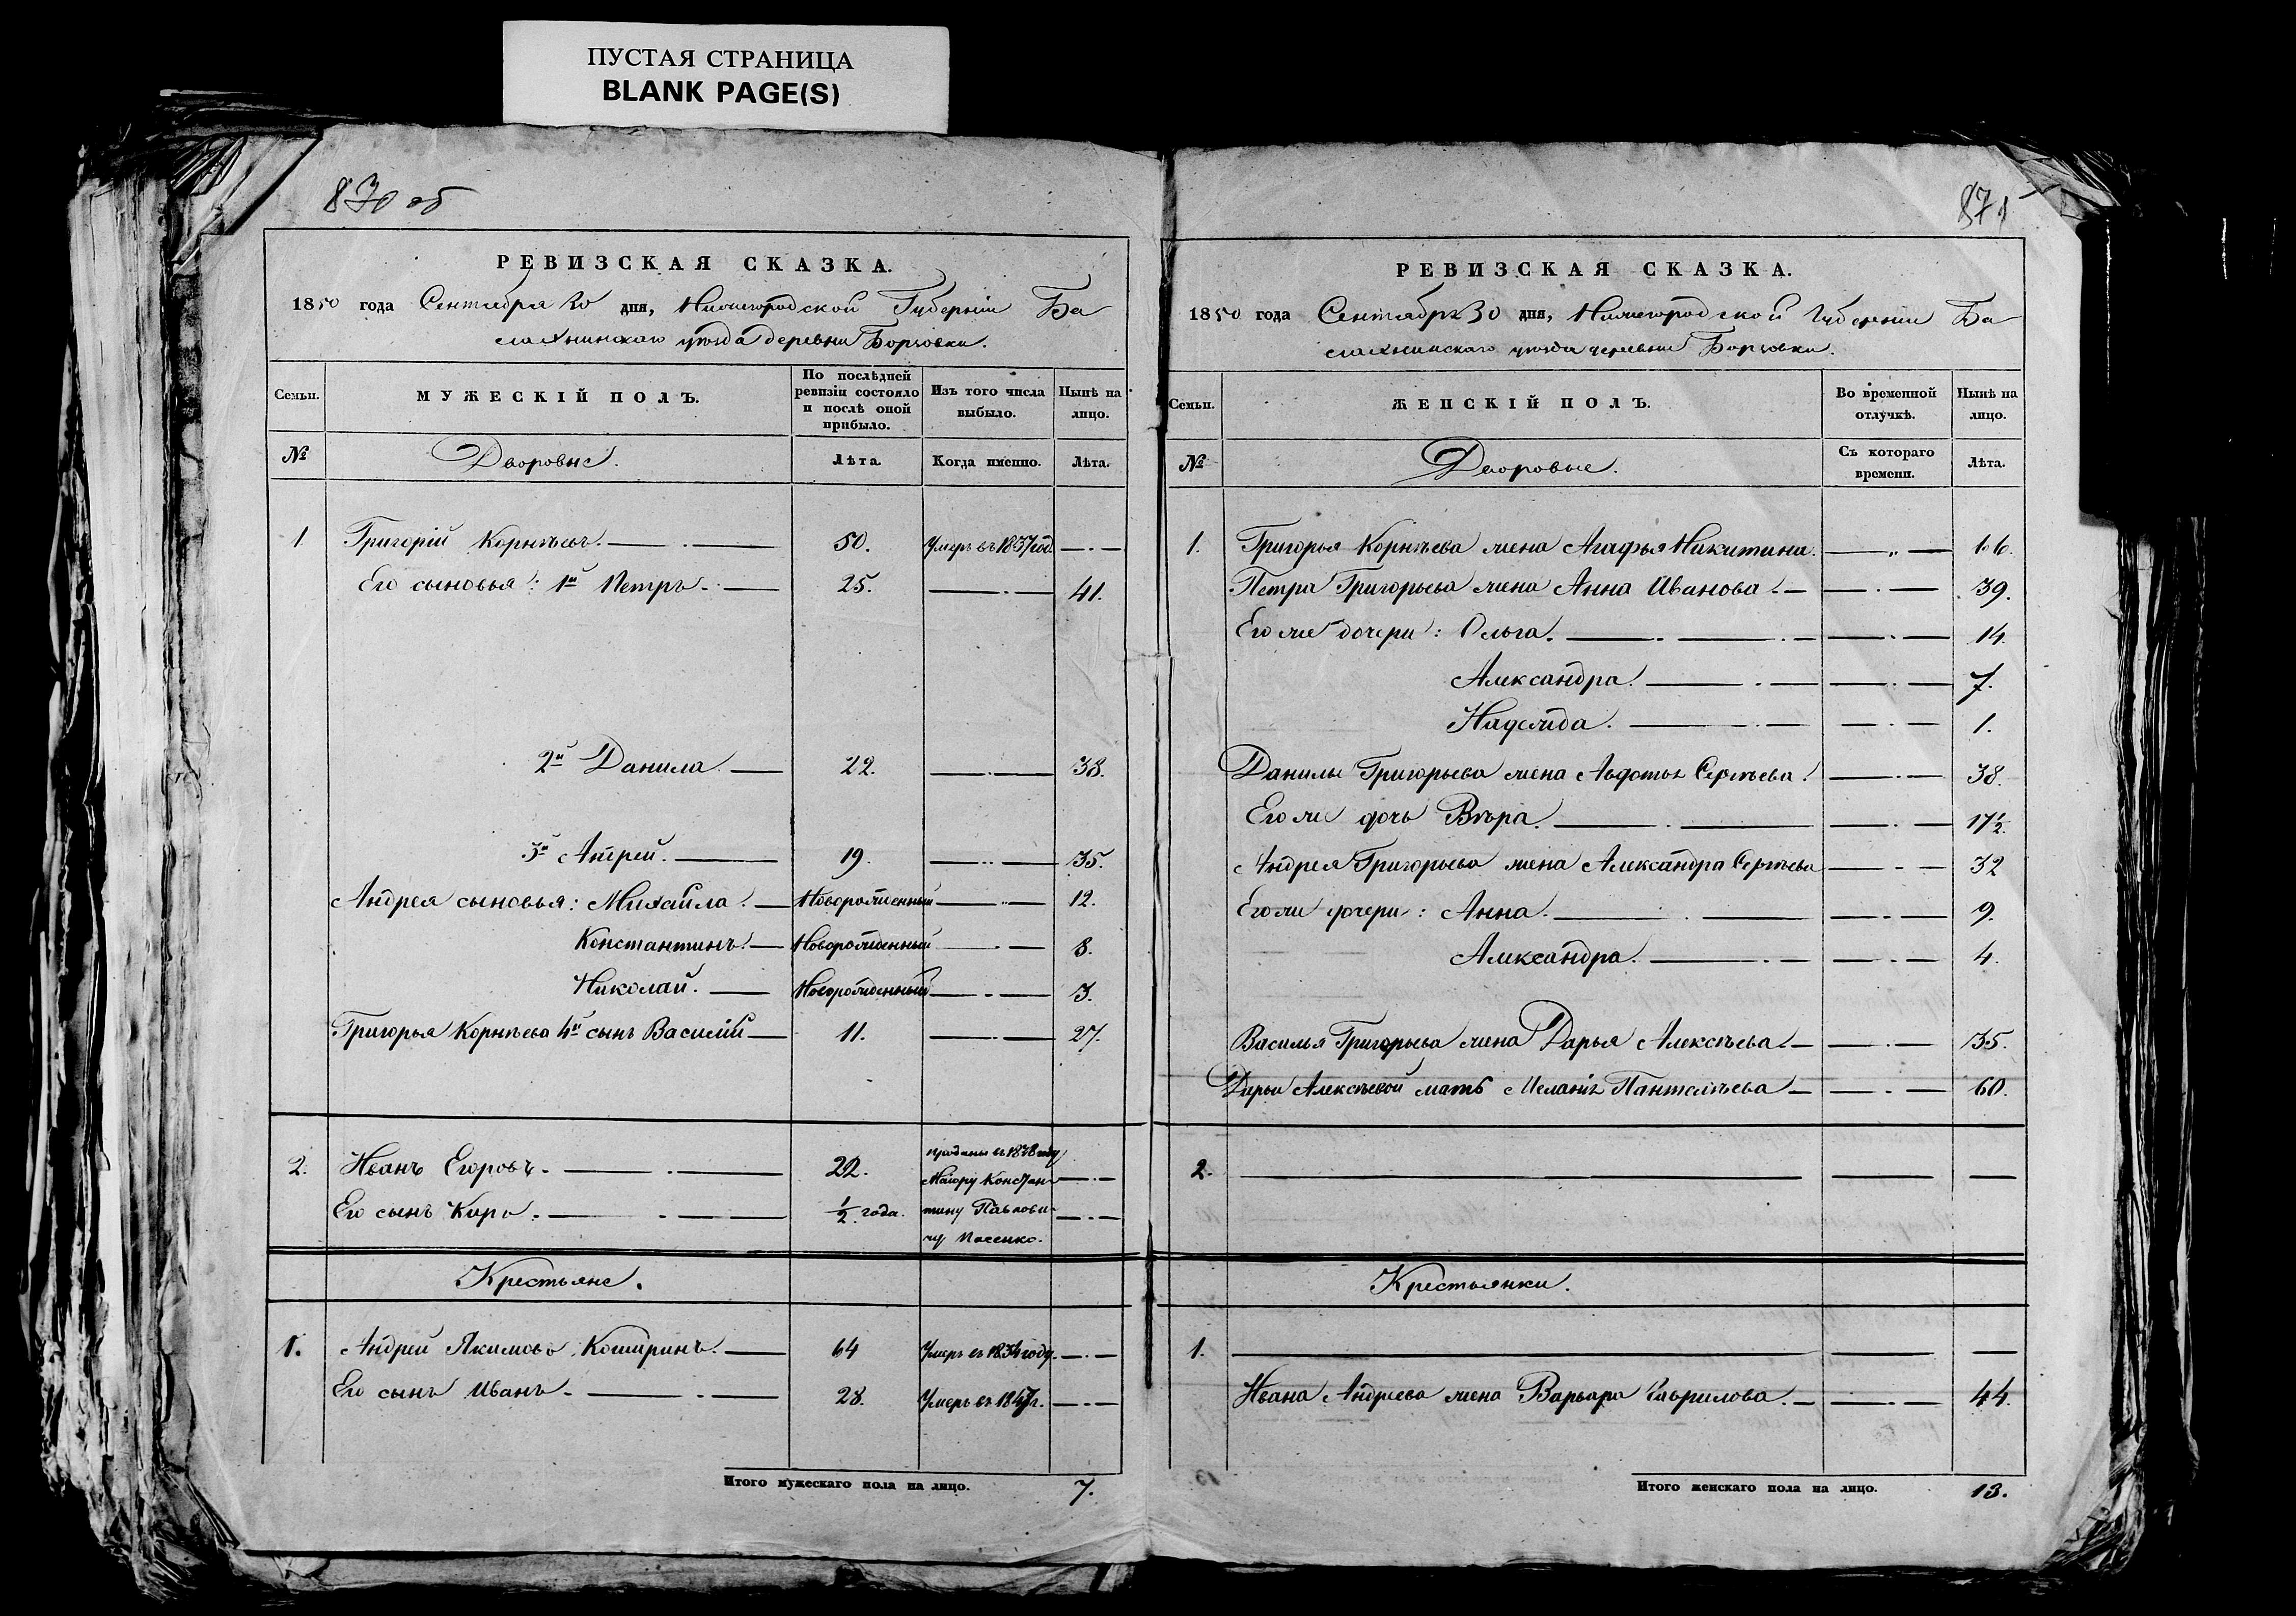 ПУСТАЯ СТРАНИЦА
BLANK PAGE(S)
870 об
РЕВИЗСКАЯ СКАЗКА.
1850 года Сентября 30 дня, Нижегородской Губерніи Ба
лахнинскаго уѣзда деревни Борзовки.
Семьи.
МУЖЕСКІЙ ПОЛЪ.
По послѣдней ревизіи состояло и послѣ оной прибыло.
Изъ того числа выбыло.
Нынѣ на лицо.
№ Дворовые. Лѣта Когда именно. Лѣта.
1 Григорій Корнѣевъ. 50. Умеръ въ 1837 год
Его сыновья: 1й Петръ. 25. 41.
2й Данила 22. 38.
3й Андрей. 19. 35.
Андрея сыновья: Михайла. Новорожденный 12.
Константинъ. Новорожденный 8.
Николай. Новорожденный 3.
Григорья Корнѣева 4й сынъ Василій 11. 27.
2. Иванъ Егоровъ. 22. проданы въ 1838 году
Маіору Констан
Его сынъ Киръ. 1/2 года. тину Павлови
чу
Крестьяне.
1. Андрей Якимовъ Коширинъ. 64 Умеръ въ 1834 году.
Его сынъ Иванъ. 28. Умеръ въ 1847 г.
Итого мужескаго пола на лицо. 7.
871
РЕВИЗСКАЯ СКАЗКА.
1850 года Сентября 30 дня, Нижегородской Губерніи Ба
лахнинскаго уѣзда деревни Борзовки.
Семьи.
ЖЕНСКІЙ ПОЛЪ.
Во временной отлучкѣ.
Нынѣ на лицо.
№ Дворовые. Съ котораго времени. Лѣта.
1. Григорья Корнѣева жена Агафья Никитина. 66.
Петра Григорьева жена Анна Иванова. 39.
Его же дочери: Ольга. 14.
Александра. 7.
Надежда. 1.
Данилы Григорьева жена Авдотья Сергѣева. 38.
Его же дочь Вѣра. 17 1/2.
Андрея Григорьева жена Александра Сергѣева 32
Его же дочери: Анна. 9.
Александра. 4.
Василья Григорьева жена Дарья Алексѣева. 35.
Дарьи Алексѣевой мать Меланія Пантелѣева 60.
2.
Крестьянки.
1.
Ивана Андреева жена Варвара Гаврилова. 44.
Итого женскаго пола на лицо. 13.